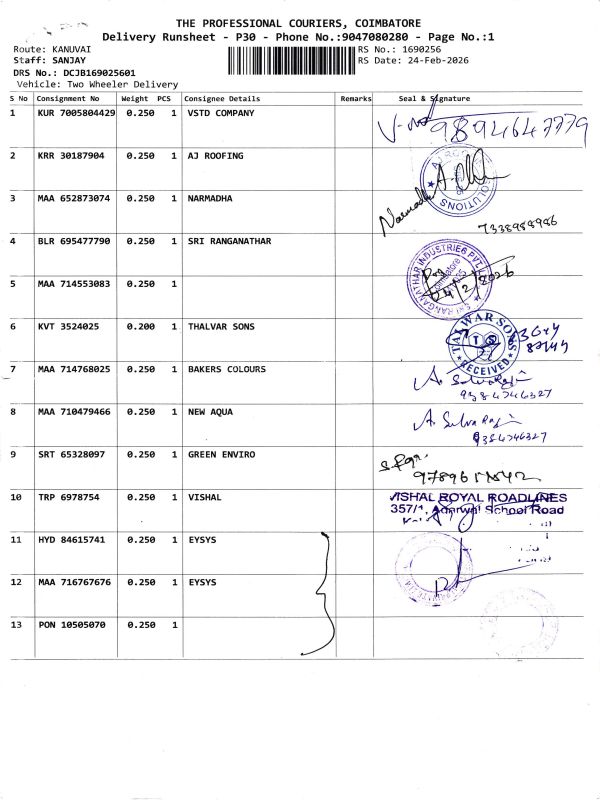 THE PROFESSIONAL COURIERS, COIMBATORE
Delivery Runsheet - P30 - Phone No.:9047080280 - Page No.:1
Route: KANUVAI RS No.: 1690256
Staff: SANJAY RS Date: 24-Feb-2026
DRS No.: DCJB169025601
Vehicle: Two Wheeler Delivery
S No Consignment No Weight PCS Consignee Details Remarks Seal & Signature
1 KUR 7005804429 0.250 1 VSTD COMPANY 9894647779
2 KRR 30187904 0.250 1 AJ ROOFING
SOLUTIONS
3 MAA 652873074 0.250 1 NARMADHA Narmadha
7338988986
4 BLR 695477790 0.250 1 SRI RANGANATHAR
SRI RANGANATHAR INDUSTRIES PVT. LTD.
24/2/2026
5 MAA 714553083 0.250 1
6 KVT 3524025 0.200 1 THALVAR SONS
TALWAR SONS
T S
RECEIVED
7 MAA 714768025 0.250 1 BAKERS COLOURS A. Selvaraj
9384746327
8 MAA 710479466 0.250 1 NEW AQUA A. Selvaraj
9384746327
9 SRT 65328097 0.250 1 GREEN ENVIRO
10 TRP 6978754 0.250 1 VISHAL VISHAL ROYAL ROADLINES
357/1, Agarwal School Road
11 HYD 84615741 0.250 1 EYSYS
12 MAA 716767676 0.250 1 EYSYS
13 PON 10505070 0.250 1